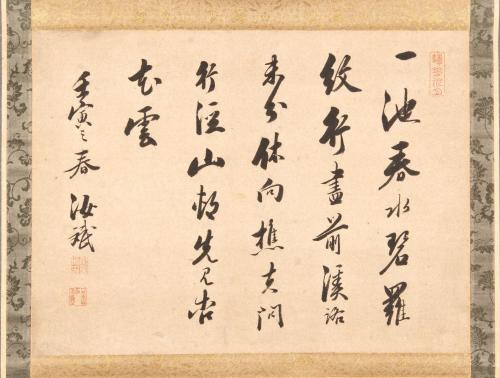 一池春水碧羅
紋行盡前溪路
未分休向樵夫問
行徑山邨先見杏
花雲
壬寅之春 汝